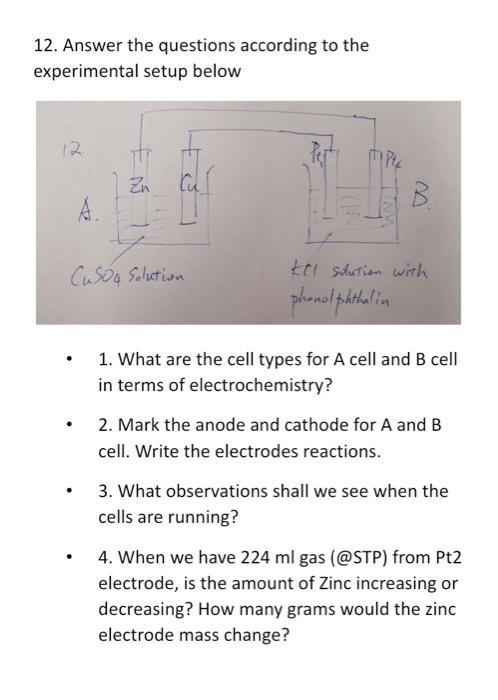 12. Answer the questions according to the
experimental setup below
12.
Zn Cu Pt1 Pt2
A. B.
CuSO4 Solution
KCl solution with
phonolphthalin
• 1. What are the cell types for A cell and B cell
in terms of electrochemistry?
• 2. Mark the anode and cathode for A and B
cell. Write the electrodes reactions.
• 3. What observations shall we see when the
cells are running?
• 4. When we have 224 ml gas (@STP) from Pt2
electrode, is the amount of Zinc increasing or
decreasing? How many grams would the zinc
electrode mass change?